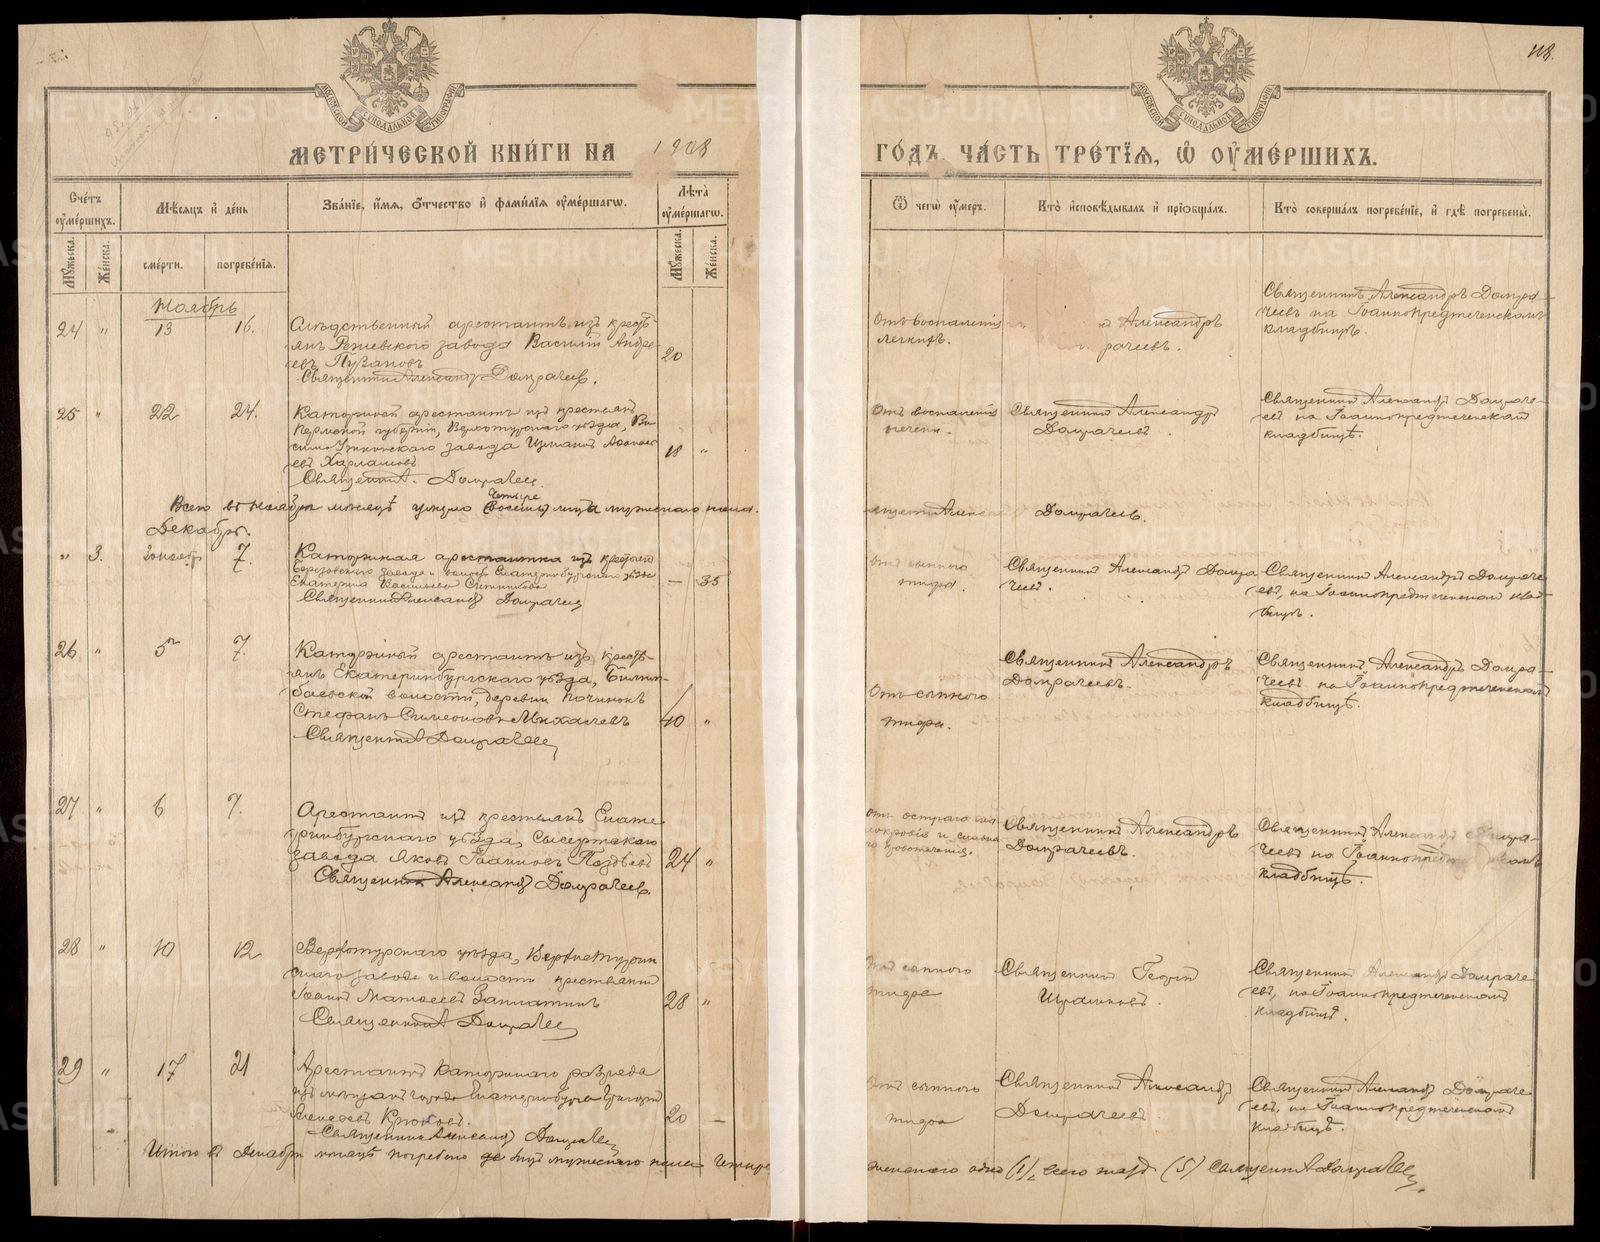 118.
МЕТРИ́ЧЕСКОЙ КНИ́ГИ НА 1908 ГО́ДЪ. ЧА́СТЬ ТРЕ́ТЇѦ, Ѽ ОУ҆МЕ́РШИХЪ.
МОСКОВСКОЙ СѴНОДАЛЬНОЙ ТИПОГРАФІИ
Сче́тъ оу҆ме́ршихъ.
Мѣ́сѧцъ и҆ де́нь
Зва́нїе, и҆́мѧ, ѻ҆́тчество и҆ фами́лїѧ оу҆ме́ршагѡ.
Лѣ́та оу҆ме́ршагѡ.
Ѿ чегѡ̀ оу҆́меръ.
Кто̀ и҆сповѣ́дывалъ и҆ прїѡбща́лъ.
Кто̀ соверша́лъ погребе́нїе, и҆ гдѣ̀ погребены̀.
Мꙋ́жеска.
Же́нска.
сме́рти.
погребе́нїѧ.
Мꙋ́жеска.
Же́нска.
Ноябрь
24 " 13 16.
Слѣдственный арестантъ изъ кресть-
янъ Режевского завода Василій Андре-
евъ Пузановъ 20
Священникъ Александръ Домрачевъ.
Отъ воспаленія
легкихъ.
Александръ
рачевъ.
Священникъ Александръ Домра-
чевъ на Іоаннопредтеченскомъ
кладбищѣ.
25 " 22 24.
Каторжный арестантъ изъ крестьянъ
Пермской губерніи, Верхотурскаго уѣзда, Ви-
симо-Уткинскаго завода
евъ Харламовъ 18 "
Священникъ А. Домрачевъ.
Отъ воспаленія
печени.
Священникъ Александръ
Домрачевъ.
Священникъ Александръ Домраче-
въ на Іоаннопредтеченском
кладбищѣ.
Всего въ Ноябрѣ мѣсяцѣ умерло четыре лица мужскаго пола.
Домрачевъ.
Декабрь.
" 3. 7.
Каторжная арестантка изъ крестьян
Березовскаго завода и волости Екатеринбургскаго уѣзда
Екатерина Васильева — 35
Священникъ Александръ Домрачевъ
тифа.
Священникъ Александръ Домра
чевъ.
Священникъ Александръ Домраче-
въ, на Іоаннопредтеченском клад-
бищѣ.
26 " 5 7.
Каторжный арестантъ изъ кресть-
янъ Екатеринбургскаго уѣзда, Билим-
баевской волости, деревни Починокъ
Стефанъ Симеоновъ Михалевъ 40 "
Священникъ А Домрачевъ
Отъ сыпного
тифа.
Священникъ Александръ
Домрачевъ.
Священникъ Александръ Домра-
чевъ на Іоаннопредтеченском
кладбищѣ.
27 " 6 7.
Арестантъ изъ крестьянъ Екате-
ринбургскаго уѣзда, Сысертскаго
завода Яковъ Іоанновъ 24 "
Священникъ Александръ Домрачевъ.
Отъ остраго мало-
кровія и сильна-
го кровотеченія.
Священникъ Александръ
Домрачевъ.
Священникъ Александръ Домра-
чевъ на Іоаннопредтеченскомъ
кладбищѣ.
28 " 10 12
Верхотурскаго уѣзда, Верхнетурин-
скаго завода и волости крестьянинъ
Іоаннъ Матвеевъ Заплаткинъ 28 "
Священникъ А Домрачевъ
Отъ сыпного
тифа
Священникъ Георгій
Священникъ Александръ Домраче-
въ, на Іоаннопредтеченскомъ
кладбищѣ.
29 " 17 21
Арестантъ каторжнаго разряда
изъ мѣщанъ города Екатеринбурга Григорій
Алексѣевъ Крюковъ. 20 —
Священникъ Александръ Домрачевъ
Отъ сыпного
тифа
Священникъ Александръ
Домрачевъ.
Священникъ Александръ Домраче-
въ, на Іоаннопредтеченскомъ
кладбищѣ.
Итого въ Декабрѣ мѣсяцѣ погребено лицъ мужескаго пола четыре
женскаго одно (1), всего пять (5) Священникъ А Домрачевъ.
METRIKI.GASO-URAL.RU